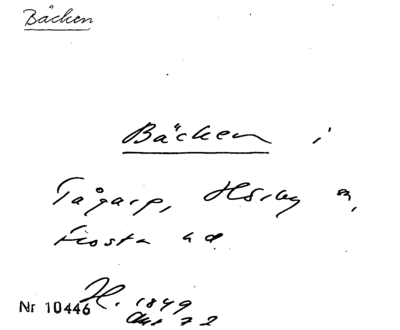 Bäcken
Bäcken i
Tågarp, Hörby sn,
Frosta hd
H. 1849
Nr 10446